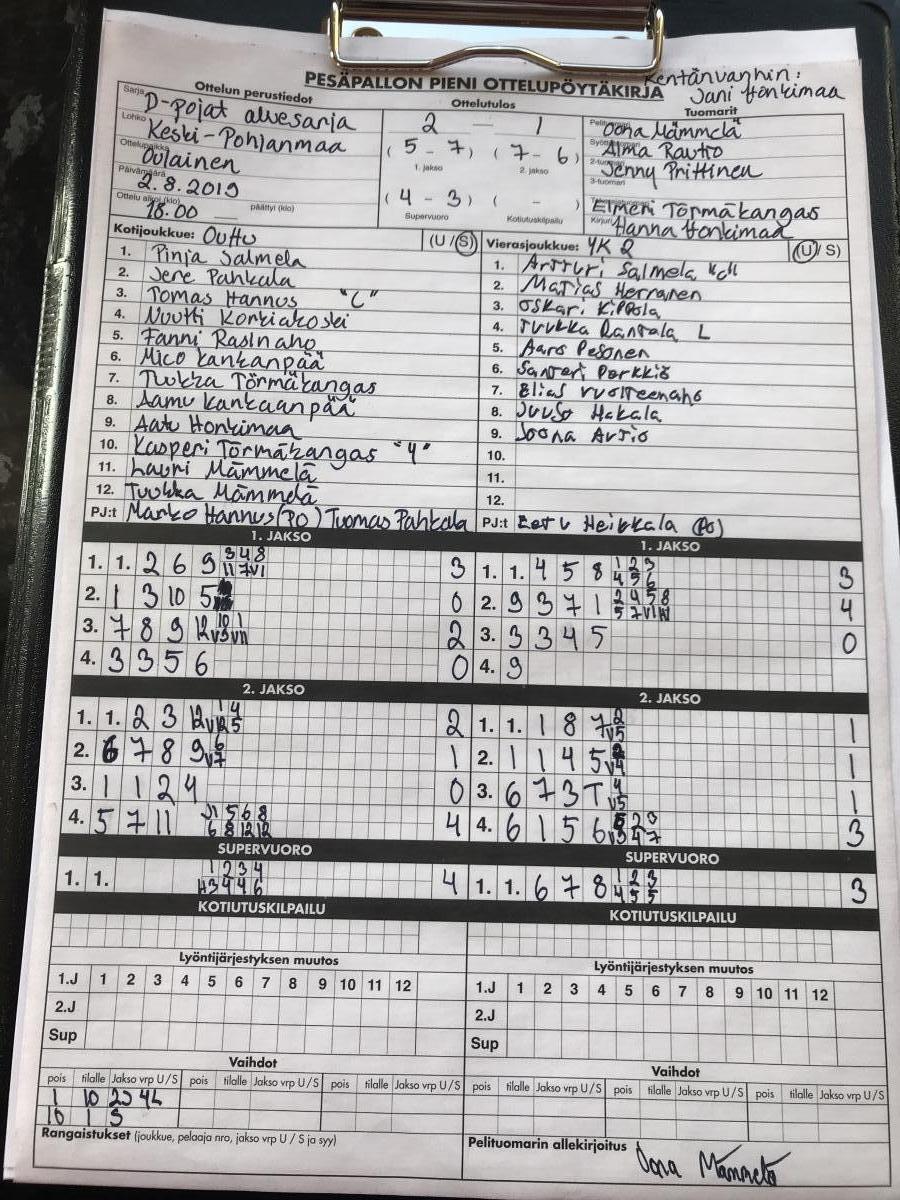 Kentänvanhin:
PESÄPALLON PIENI OTTELUPÖYTÄKIRJA Jani Honkimaa
Ottelun perustiedot Ottelutulos Tuomarit
Sarja D-pojat aluesarja
Lohko Keski-Pohjanmaa
Ottelupaikka Oulainen
Päivämäärä 2.8.2019
Ottelu alkoi (klo) 18.00 päättyi (klo)
2 — 1
( 5 - 7 ) ( 7 - 6 )
1. jakso 2. jakso
( 4 - 3 ) ( - )
Supervuoro Kotiutuskilpailu
Pelituomari Oona Mämmelä
Alma Rautio
2-tuomari Jenny Prittinen
3-tuomari
Elmeri Törmäkangas
Kirjuri Hanna Honkimaa
Kotijoukkue: OuHu (U / S)
1. Pinja Salmela
2. Jere Pahkala
3. Tomas Hannus "C"
4. Nuutti Korkiakoski
5. Fanni Rasinaho
6. Mico Kankanpää
7. Tuukka Törmäkangas
8. Aamu Kankaanpää
9. Aatu Honkimaa
10. Kasperi Törmäkangas "4"
11. Lauri Mämmelä
12. Tuukka Mämmelä
PJ:t Marko Hannus (PO) Tuomas Pahkala
Vierasjoukkue: YK 2 (U / S)
1. Artturi Salmela "C"
2. Matias Herranen
3. Oskari Kippola
4. Tuukka Rantala L
5. Aaro Pesonen
6. Santeri Porkkiö
7. Elias Vuolteenaho
8. Juuso Hakala
9. Joona Autio
10.
11.
12.
PJ:t Eetu Heikkala (PO)
1. JAKSO 1. JAKSO
1. 1. 2 6 9 3 4 8 3
11 7 VI
2. 1 3 10 5 0
3. 7 8 9 12 10 1 2
4. 3 3 5 6 0
1. 1. 4 5 8 1 2 3 3
4 5 6
2. 9 3 7 1 2 4 5 8 4
3. 3 3 4 5 0
4. 9
2. JAKSO 2. JAKSO
1. 1. 2 3 12 1 4 2
2. 6 7 8 9 6 1
V7
3. 1 1 2 4 0
4. 5 7 11 5 6 8 4
6 8 12 12
1. 1. 1 8 7 2 1
V5
2. 1 1 4 5 1
V4
3. 6 7 3 T 4 1
V5
4. 6 1 5 6 2 3 3
SUPERVUORO SUPERVUORO
1. 1. 1 2 3 4 4
3 4 4 6
1. 1. 6 7 8 1 2 3 3
4 5 5
KOTIUTUSKILPAILU KOTIUTUSKILPAILU
Lyöntijärjestyksen muutos Lyöntijärjestyksen muutos
1.J 1 2 3 4 5 6 7 8 9 10 11 12 1.J 1 2 3 4 5 6 7 8 9 10 11 12
2.J 2.J
Sup Sup
Vaihdot Vaihdot
pois tilalle Jakso vrp U / S pois tilalle Jakso vrp U / S pois tilalle Jakso vrp U / S pois tilalle Jakso vrp U / S pois tilalle Jakso vrp U / S pois tilalle Jakso vrp U / S
1 10 2J 4L
10 1 S
Rangaistukset (joukkue, pelaaja nro, jakso vrp U / S ja syy)
Pelituomarin allekirjoitus Oona Mämmelä